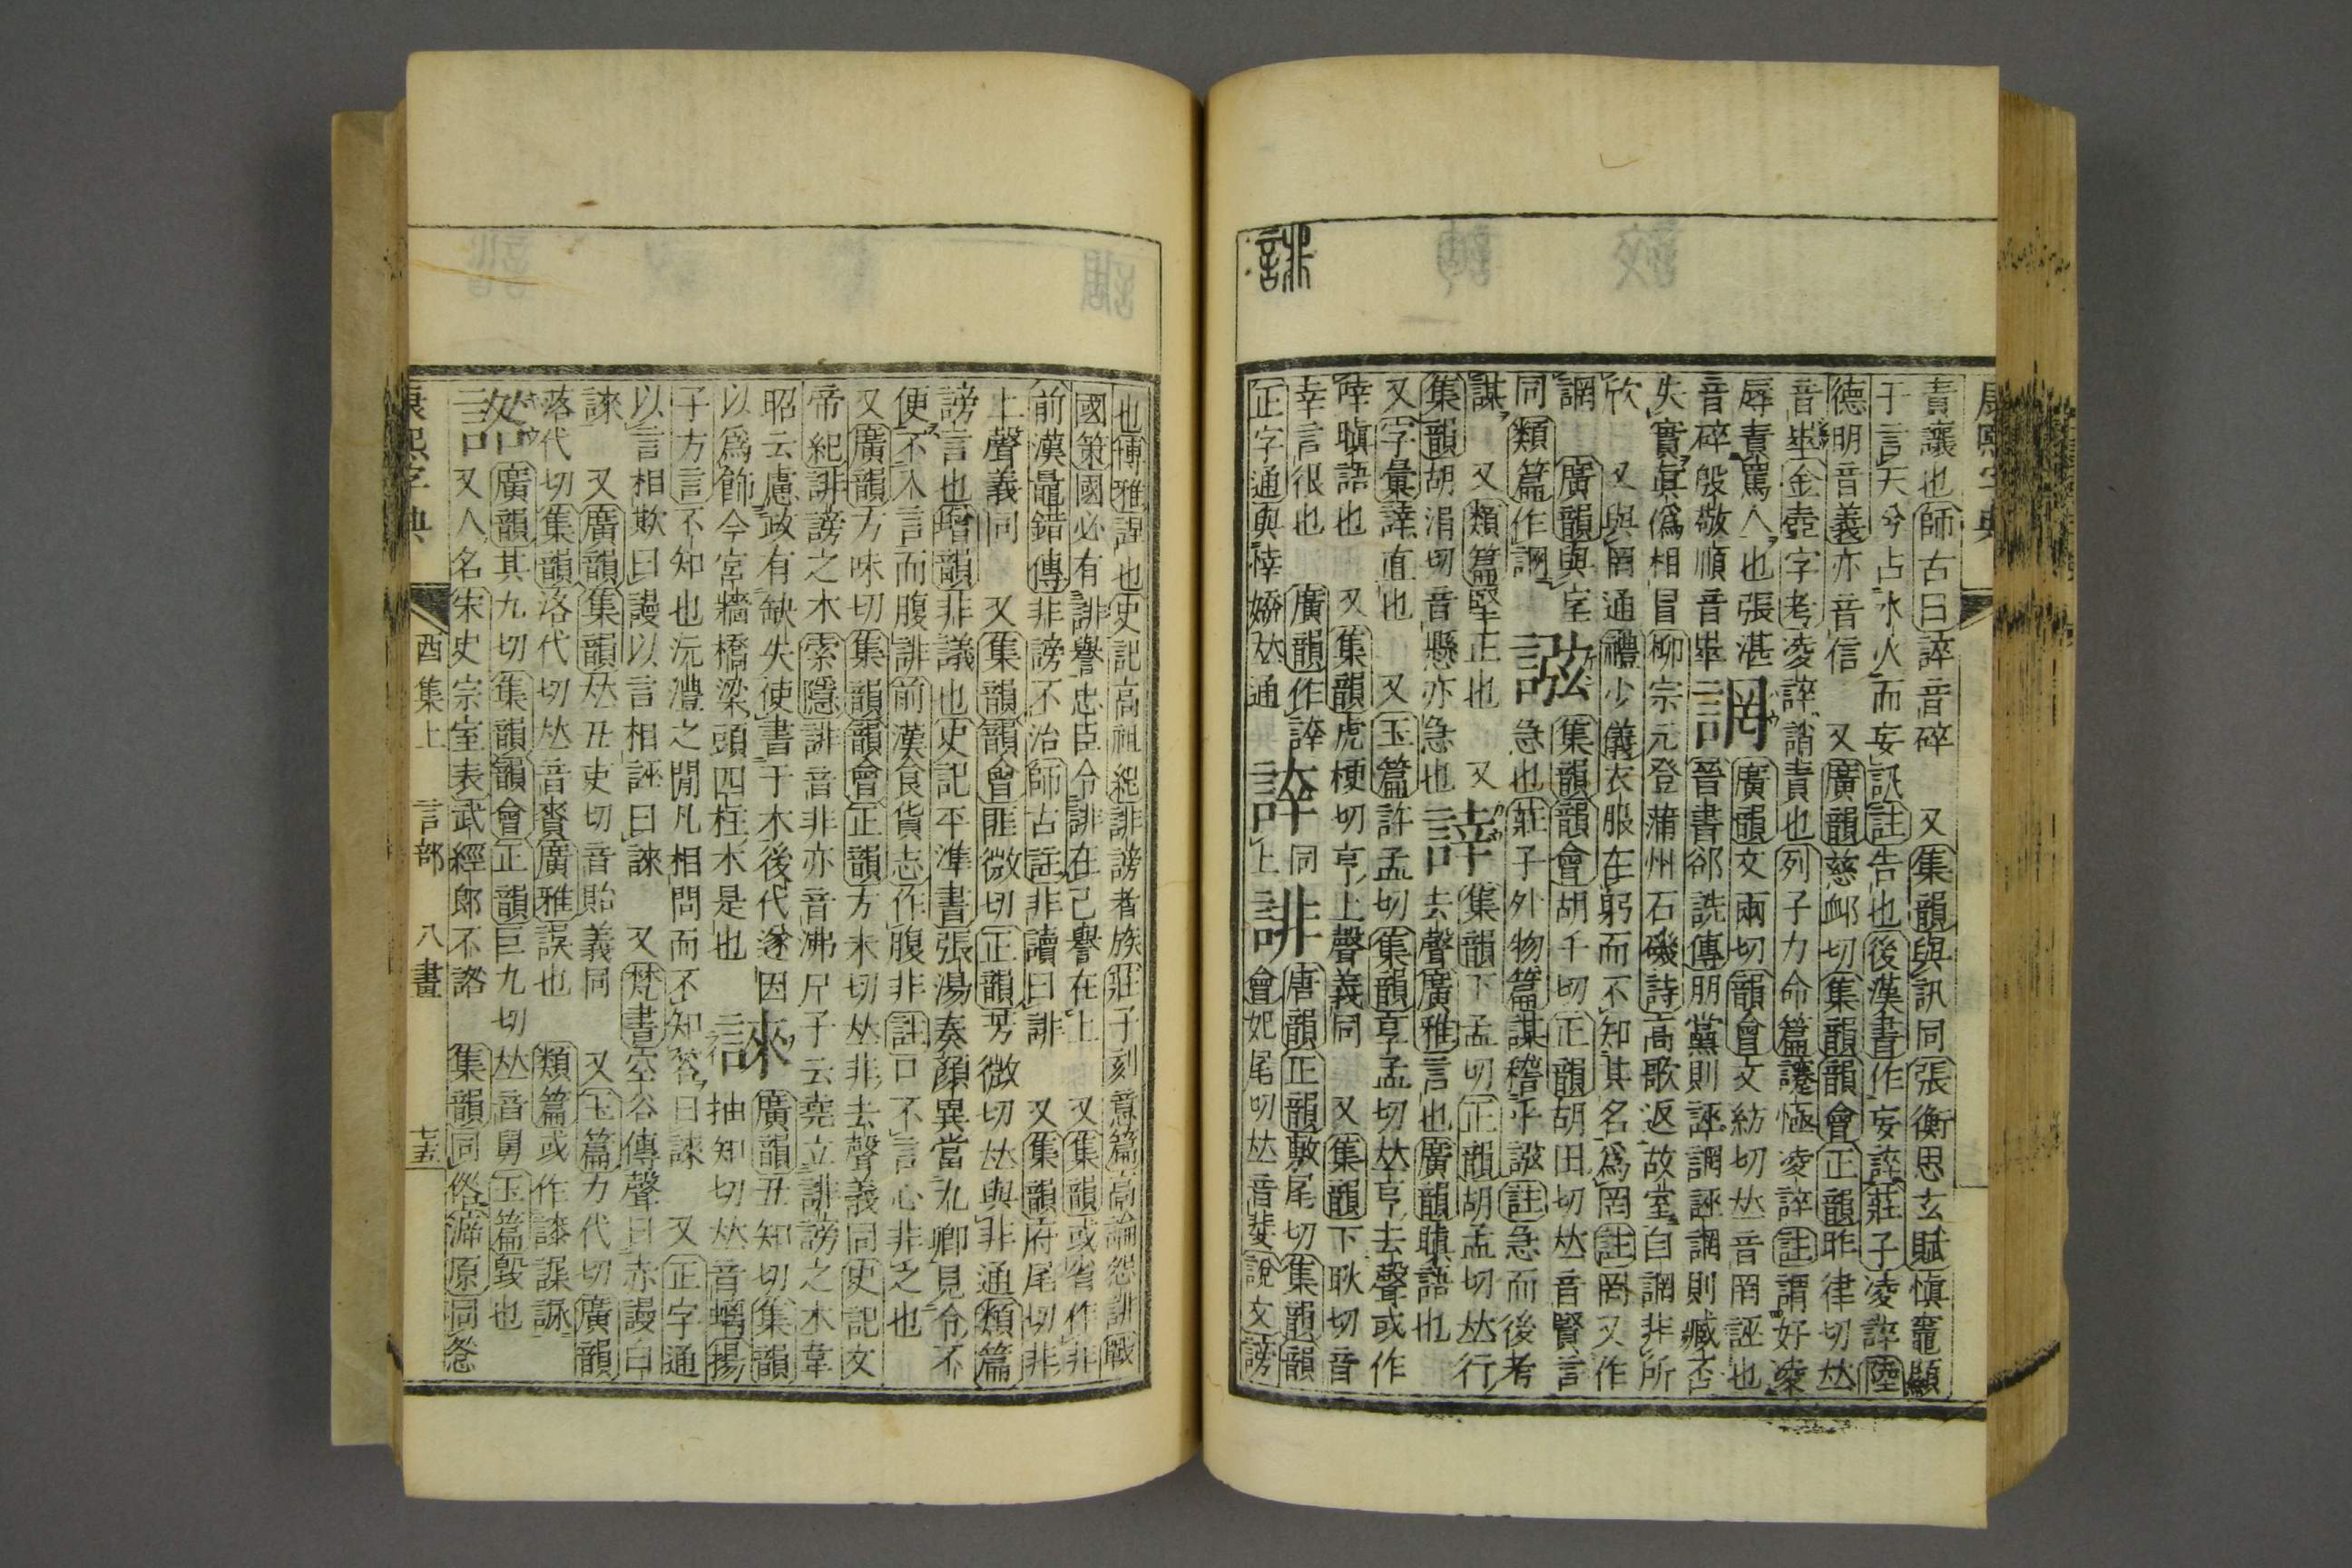 誹
康熙字典
責讓也師古曰誶音碎 又集韻與訊同張衡思玄賦愼竈顯
于言天兮占水火而妄訊註告也後漢書作妄誶莊子凌誶陸
德明音義亦音信 又廣韻慈卹切集韻韻會正韻昨律切𠀤
音崒金壺字考凌誶誚責也列子力命篇𧫡㥛凌誶註謂好凌
辱責罵人也張湛音碎殷敬順音崒
誷
廣韻文兩切韻會文紡切𠀤音罔誣也
晉書郤詵傳朋黨則誣誷誣誷則臧否
失實眞僞相冒柳宗元登蒲州石磯詩高歌返故室自誷非所
欣 又與罔通禮少儀衣服在躬而不知其名爲罔註罔又作
誷 廣韻與室同類篇作諷
誸
集韻韻會胡千切正韻胡田切𠀤音賢言
急也莊子外物篇謀稽乎誸註急而後考
謀 又類篇堅正也 又集韻胡涓切音懸亦急也
誟
集韻下孟切正韻胡孟切𠀤行
去聲廣雅言也廣韻瞋語也
又字彙誟直也 又玉篇許孟切集韻亨孟切𠀤亨去聲或作
悻瞋語也 又集韻虎梗切亨上聲義同 又集韻下耿切音
幸言很也 廣韻作誶
正字通與悻婞𠀤通
誶
同
上
誹
唐韻正韻敷尾切集韻韻
會妃尾切𠀤音斐說文謗
也博雅諻也史記高祖紀誹謗者族莊子刻意篇高論怨誹戰
國策國必有誹譽忠臣令誹在己譽在上 又集韻或省作非
前漢鼂錯傳非謗不治師古註非讀曰誹 又集韻府尾切非
上聲義同 又集韻韻會匪微切正韻芳微切𠀤與非通類篇
謗言也增韻非議也史記平準書張湯奏顏異當九卿見令不
便不入言而腹誹前漢食貨志作腹非註口不言心非之也
又廣韻方味切集韻韻會正韻方未切𠀤非去聲義同史記文
帝紀誹謗之木索隱誹音非亦音沸尸子云堯立誹謗之木韋
昭云慮政有缺失使書于木後代遂因
以爲飾今宮牆橋梁頭四柱木是也
誺
廣韻丑知切集韻
抽知切𠀤音螭揚
子方言不知也沅澧之閒凡相問而不知答曰誺 又正字通
以言相欺曰謾以言相誣曰誺 又梵書空谷傳聲曰赤謾白
誺 又廣韻集韻𠀤丑吏切音眙義同 又玉篇力代切廣韻
落代切集韻洛代切𠀤音賚廣雅誤也 類篇或作䜐謀詠
諮
廣韻其九切集韻韻會正韻巨九切𠀤音舅玉篇毀也
又人名宋史宗室表武經郎不諮 集韻同俗㴲原同惉
康熙字典 酉集上 言部 八畫 七五